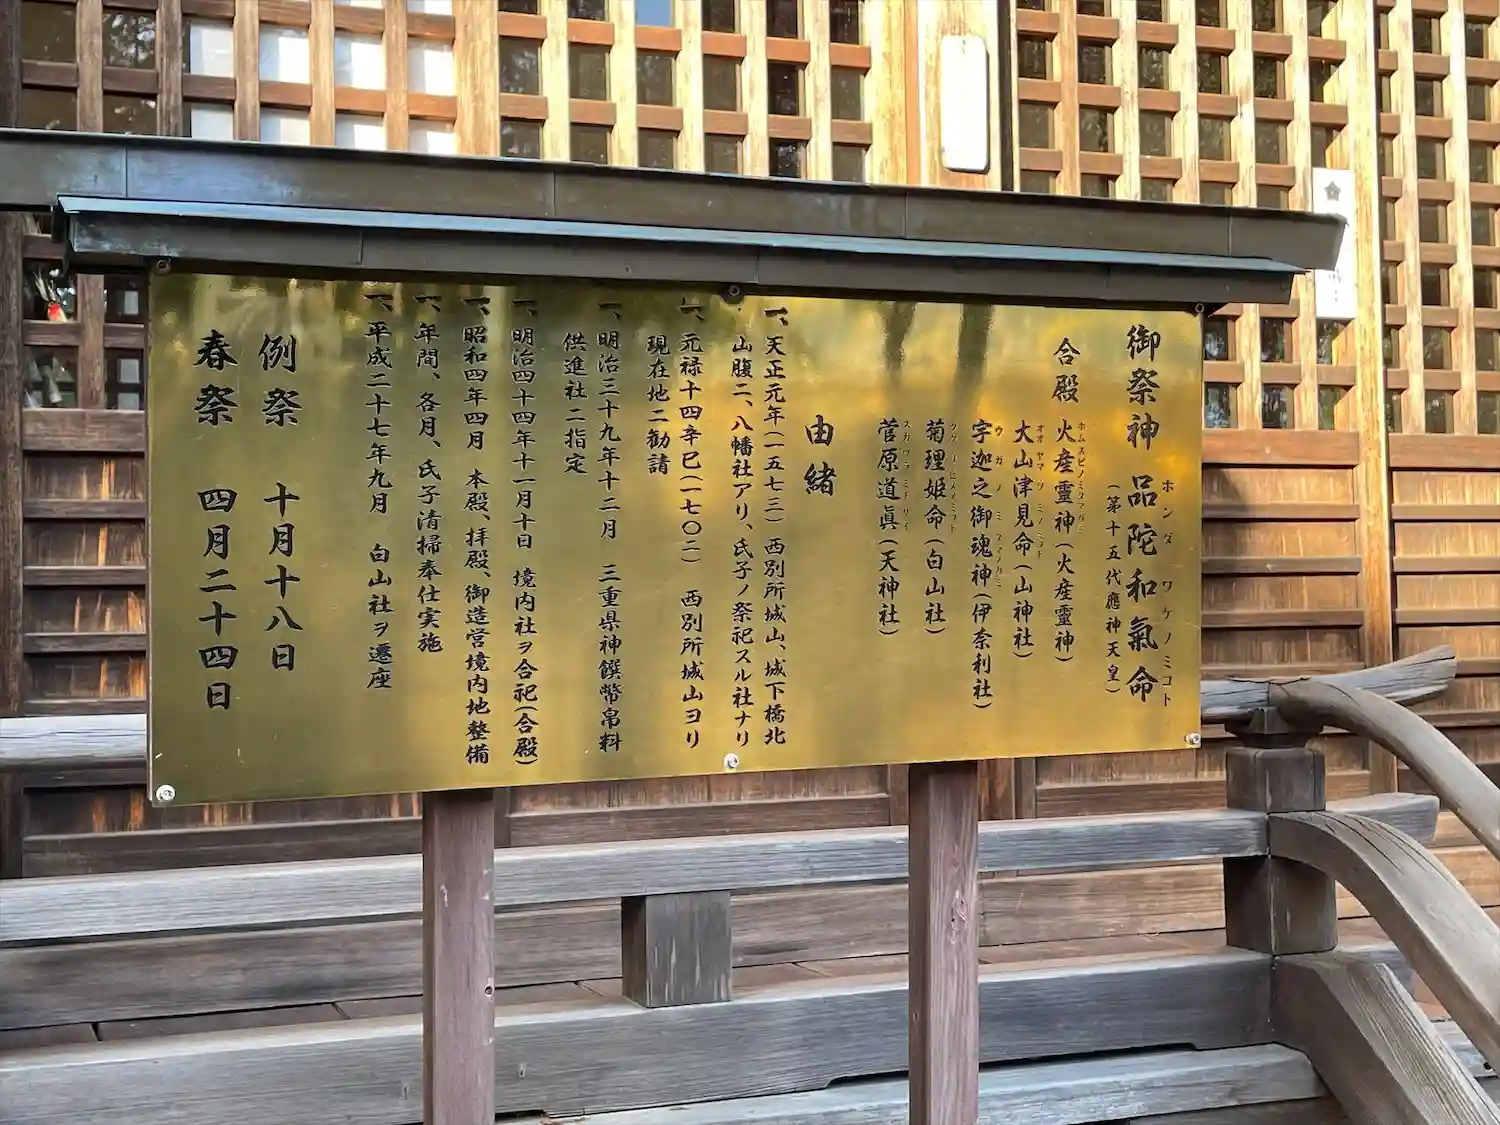 御祭神 品陀和氣命
ホンダワケノミコト
(第十五代應神天皇)
合殿
火産靈神(火産靈神)
大山津見命(山神社)
宇迦之御魂神(伊奈利社)
菊理姫命(白山社)
菅原道眞(天神社)
由緒
一、天正元年(一五七三) 西別所城山、城下橋北
山腹ニ、八幡社アリ、氏子ノ祭祀スル社ナリ
一、元禄十四辛巳(一七〇二) 西別所城山ヨリ
現在地ニ勧請
一、明治三十九年十二月 三重県神饌幣帛料
供進社ニ指定
一、明治四十四年十一月十日 境内社ヲ合祀(合殿)
一、昭和四年四月 本殿、拝殿、御造営境内地整備
一、年間、各月、氏子清掃奉仕実施
一、平成二十七年九月 白山社ヲ遷座
例祭 十月十八日
春祭 四月二十四日